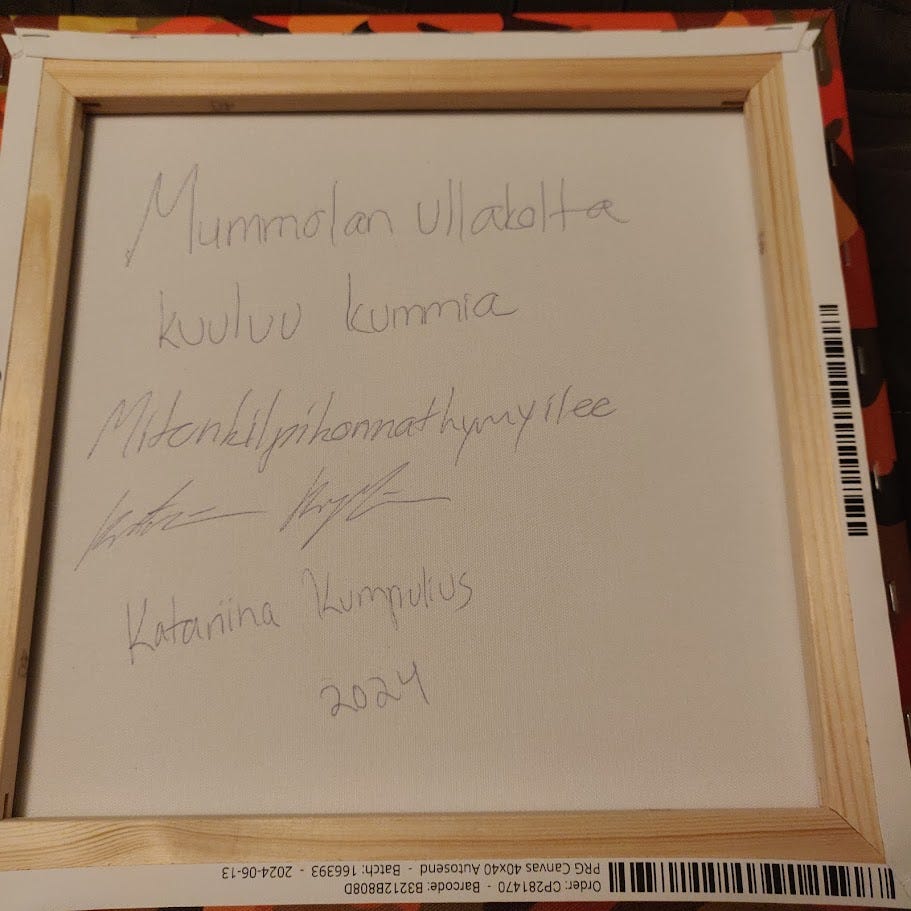 Mummolan ullakolta
kuuluu kummia
Mitenkilpikonnathymyilee
Katariina Kumpulius
2024
Order: CP281470 - Barcode: B3212B808D
PRG Canvas 40x40 Autosend - Batch: 166393 - 2024-06-13